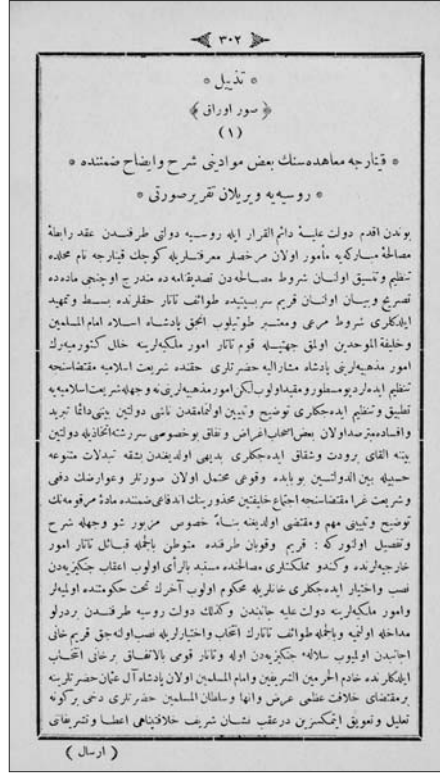 ٣٠٢
تذييل
صور اوراق
(١)
قينارجه معاهده‌سنك بعض موادينى شرح وايضاح ضمننده
روسيه‌يه ويريلان تقرير صورتى
بوندن اقدم دولت عليۀ دائم القرار ايله روسيه دولتى طرفندن عقد رابطۀ
مصالحۀ مباركه‌يه مأمور اولان مرخصلر معرفتلريله كوچك قينارجه نام محلده
تنظيم وتنسيق اولنان شروط مصالحه‌دن تصديقنامه‌ده مندرج اوچنجى ماده‌ده
تصريح وبيان اولنان قريم سربستيده طوائف تاتار حقلرنده بسط وتمهيد
ايلدكلرى شروط مرعى ومعتبر طوتيلوب انجق پادشاه اسلام امام المسلمين
وخليفة الموحدين اولمق جهتيله قوم تاتار امور ملكيه‌لرينه خلل كتورميه‌رك
امور مذهبيه‌لرينى پادشاه مشاراليه حضرتلرى حقنده شريعت اسلاميه مقتضاسنجه
تنظيم ايده‌لر ديو مسطور ومقيد اولوب لكن امور مذهبيه‌لرينى نه وجهله شريعت اسلاميه‌يه
تطبيق وتنظيم ايده‌جكلرى توضيح وتبيين اولنمامقدن ناشى دولتين بيننى دائما تبريد
وافساده مترصد اولان بعض اصحاب اغراض ونفاق بو خصوصى سررشته اتخاذيله دولتين
بيننه القاى برودت وشقاق ايده‌جكلرى بديهى اولديغندن بشقه تبدلات متنوعه
حسبيله بين الدولتين بو بابده وقوعى محتمل اولان صورتلر وعوارضك دفعى
وشريعت غرا مقتضاسنجه اجتماع خليفتين محذورينك اندفاعى ضمننده مادۀ مرقومه‌نك
توضيح وتبيينى مهم ومقتضى اولديغنه بناءً خصوص مزبور شو وجهله شرح
وتفصيل اولنوركه : قريم وقوبان طرفنده متوطن بالجمله قبائل تاتار امور
خارجيه‌لرنده وكندو مملكتلرى مصالحنده مستبد بالرأى اولوب اعقاب جنكيزيه‌دن
نصب واختيار ايده‌جكلرى خانلريله محكوم اولوب آخرك تحت حكومتنده اولميه‌لر
وامور ملكيه‌لرينه دولت عليه جانبندن وكذلك دولت روسيه طرفندن بردرلو
مداخله اولنميه وبالجمله طوائف تاتارك انتخاب واختيارلريله نصب اولنه‌جق قريم خانى
اجانبدن اولميوب سلالۀ جنكيزيه‌دن اوله وتاتار قومى بالاتفاق بر خانى انتخاب
ايلدكلرنده خادم الحرمين الشريفين وامام المسلمين اولان پادشاه آل عثمان حضرتلرينه
بر مقتضاى خلافت عظمى عرض وانها وسلطان المسلمين حضرتلرى دخى بر كونه
تعليل وتعويق ايتمكسزين درعقب نشان شريف خلافتپناهى اعطا وتشريفاتى
( ارسال )